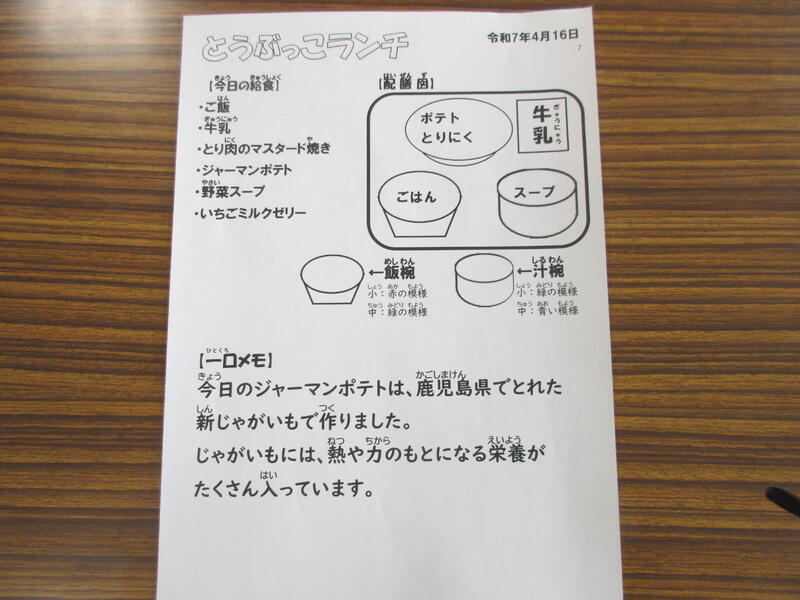 とうぶっこランチ
令和7年4月16日
7
【今日の給食】
・ご飯
・牛乳
・とり肉のマスタード焼き
・ジャーマンポテト
・野菜スープ
・いちごミルクゼリー
【配膳図】
ポテト
とりにく
牛乳
ごはん
スープ
←飯椀
小：赤の模様
中：緑の模様
←汁椀
小：緑の模様
中：青い模様
【一口メモ】
今日のジャーマンポテトは、鹿児島県でとれた
新じゃがいもで作りました。
じゃがいもには、熱や力のもとになる栄養が
たくさん入っています。